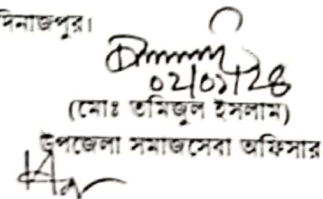 দিনাজপুর।
(মোঃ তমিজুল ইসলাম)
উপজেলা সমাজসেবা অফিসার